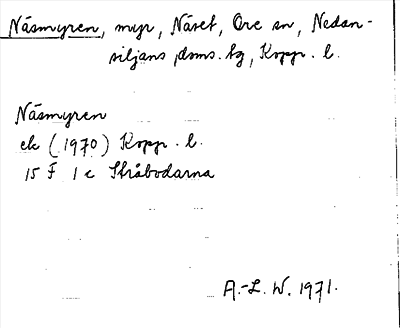 Näsmyren, myr, Näset, Ore sn, Nedan-
siljans doms. tg, Kopp. l.
Näsmyren
ek (1970) Kopp. l.
15 F 1 c Skråbodarna
A.-L. W. 1971.